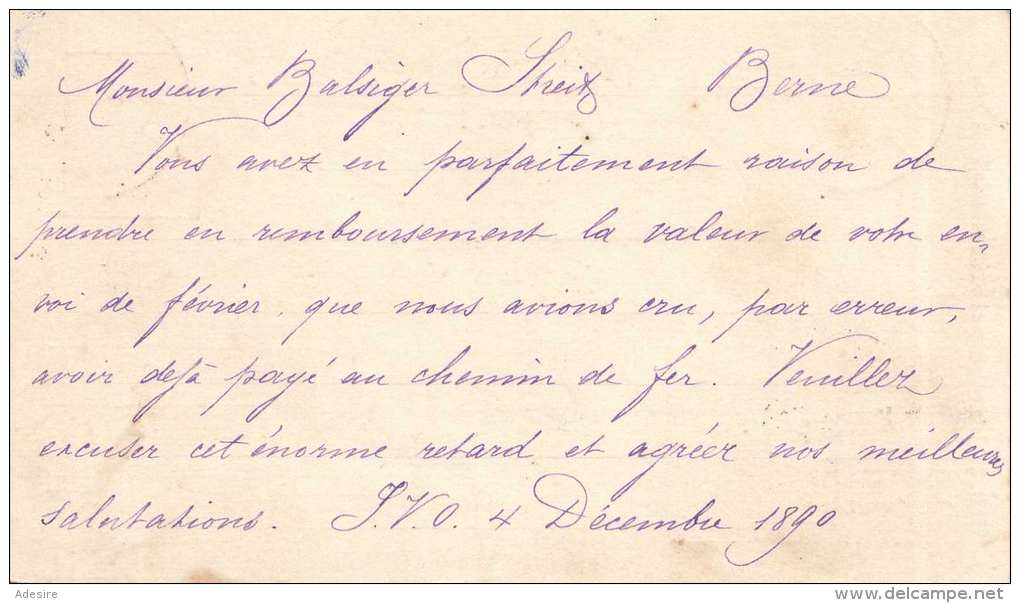 Monsieur Balsiger Streit Berne
Vous avez en parfaitement raison de
prendre en remboursement la valeur de votre en-
voi de février, que nous avions cru, par erreur,
avoir dejà payé au chemin de fer. Veuillez
excuser cet énorme retard et agréer nos meilleures
salutations. J.V.O. 4 Décembre 1890
Adesire
www.delcampe.net